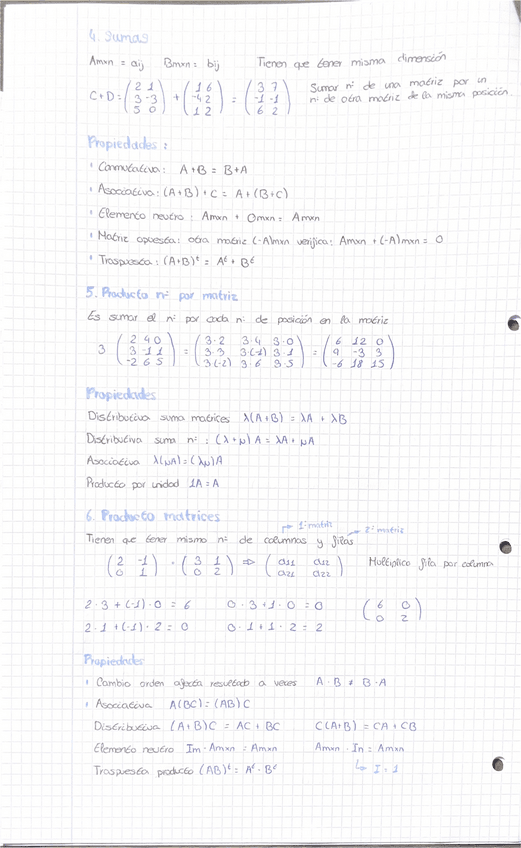 4. Sumas
Amxn = aij Bmxn = bij Tienen que tener misma dimensión
C+D = ( 2 1 ) + ( 1 6 ) = ( 3 7 ) Sumar nº de una matriz por un
( 3 -3 ) ( -4 2 ) ( -1 -1 ) nº de otra matriz de la misma posición.
( 5 0 ) ( 1 2 ) ( 6 2 )
Propiedades:
' Conmutativa: A+B = B+A
' Asociativa: (A+B)+C = A+(B+C)
' Elemento neutro: Amxn + Omxn = Amxn
' Matriz opuesta: otra matriz (-A)mxn verifica: Amxn + (-A)mxn = 0
' Traspuesta: (A+B)ᵗ = Aᵗ + Bᵗ
5. Producto nº por matriz
Es sumar el nº por cada nº de posición en la matriz
3 ( 2 4 0 ) = ( 3·2 3·4 3·0 ) = ( 6 12 0 )
( 3 -1 1 ) ( 3·3 3·(-1) 3·1 ) ( 9 -3 3 )
( -2 6 5 ) ( 3(-2) 3·6 3·5 ) ( -6 18 15 )
Propiedades
Distributiva suma matrices λ(A+B) = λA + λB
Distributiva suma nº: (λ+μ)A = λA + μA
Asociativa λ(μA) = (λμ)A
Producto por unidad 1A = A
6. Producto matrices
1ª matriz 2ª matriz
Tienen que tener mismo nº de columnas y filas
( 2 -1 ) · ( 3 1 ) ⇒ ( a11 a12 ) Multiplico fila por columna
( 0 1 ) ( 0 2 ) ( a21 a22 )
2·3+(-1)·0 = 6 0·3+1·0 = 0 ( 6 0 )
2·1+(-1)·2 = 0 0·1+1·2 = 2 ( 0 2 )
Propiedades
' Cambio orden afecta resultado a veces A·B ≠ B·A
' Asociativa A(BC) = (AB)C
Distributiva (A+B)C = AC + BC C(A+B) = CA + CB
Elemento neutro Im · Amxn = Amxn Amxn · In = Amxn
Traspuesta producto (AB)ᵗ = Aᵗ · Bᵗ ↳ I = 1